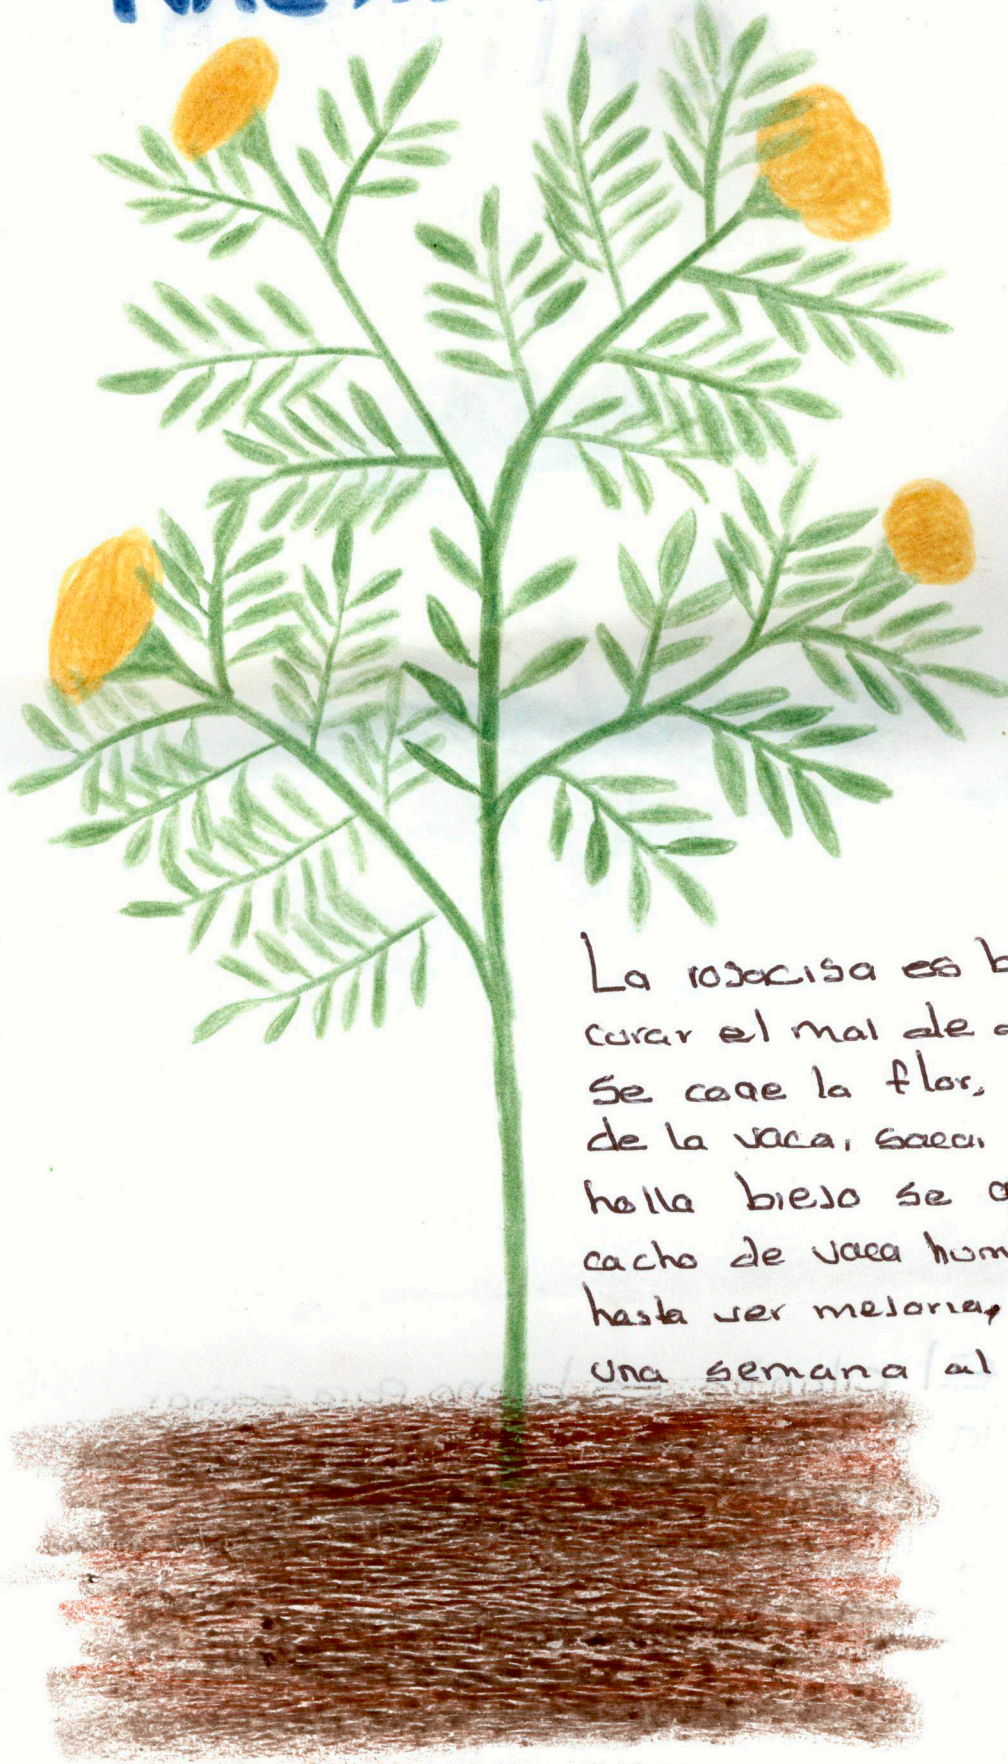 La rosacisa es b
curar el mal de
se coge la flor,
de la vaca, sacar
holla biejo se a
cacho de vaca hum
hasta ver mejoria,
una semana al